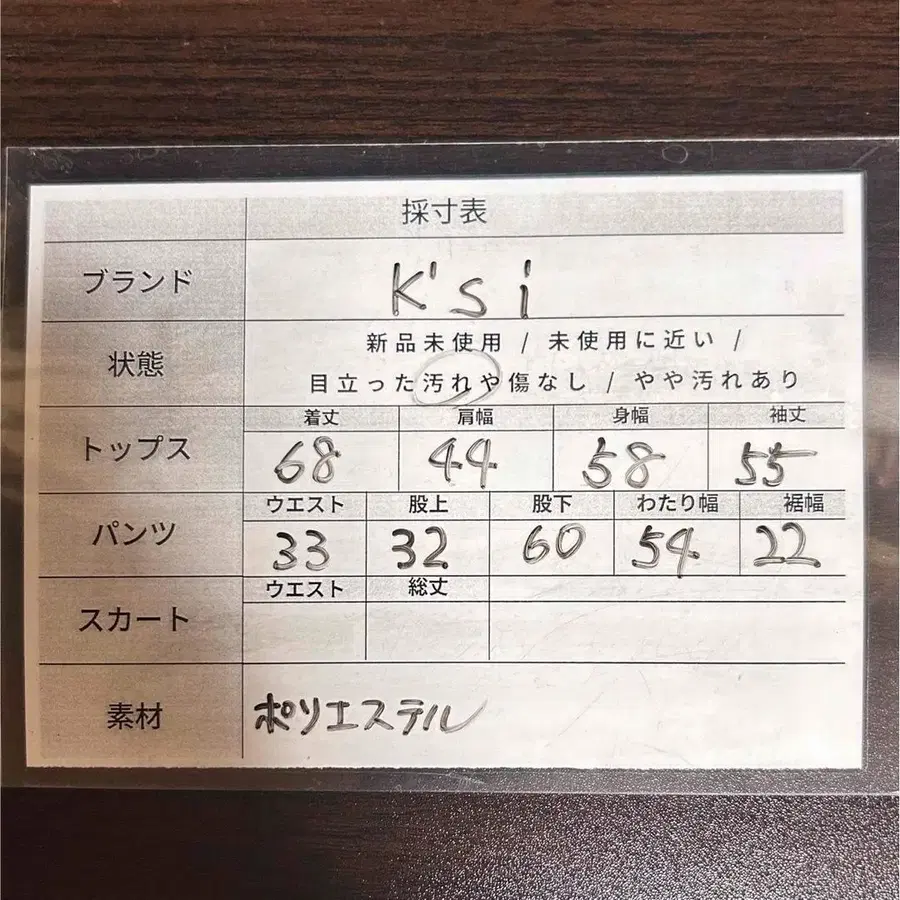 採寸表
ブランド K's i
状態 新品未使用 / 未使用に近い /
目立った汚れや傷なし / やや汚れあり
トップス 着丈 肩幅 身幅 袖丈
68 44 58 55
パンツ ウエスト 股上 股下 わたり幅 裾幅
33 32 60 54 22
スカート ウエスト 総丈
素材 ポリエステル